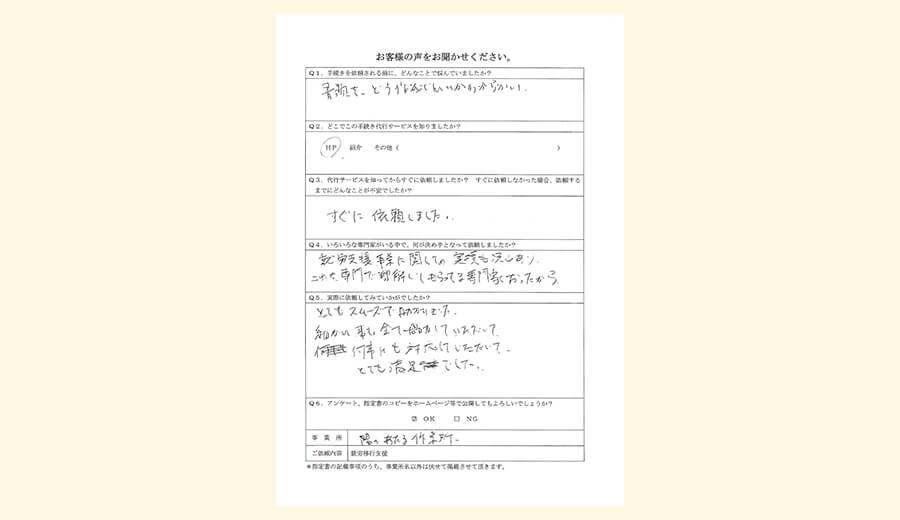 お客様の声をお聞かせください。
Q1．手続きを依頼される前に、どんなことで悩んでいましたか？
書類を、どう作ればいいかわからない．
Q2．どこでこの手続き代行サービスを知りましたか？
HP 紹介 その他（ ）
Q3．代行サービスを知ってからすぐに依頼しましたか？ すぐに依頼しなかった場合、依頼する
までにどんなことが不安でしたか？
すぐに依頼しました．
Q4．いろいろな専門家がいる中で、何が決め手となって依頼しましたか？
就労支援事業に関しての実績も沢山あり．
専門で理解してもらってる専門家だったから
Q5．実際に依頼してみていかがでしたか？
とてもスムーズで助かりました．
細かい事も全て助けていただいて
何事にも対応していただいて．
とても満足でした．
Q6．アンケート、指定書のコピーをホームページ等で公開してもよろしいでしょうか？
OK □ NG
事業所 陽のあたる作業所
ご依頼内容 就労移行支援
＊指定書の記載事項のうち、事業所名以外は伏せて掲載させて頂きます。